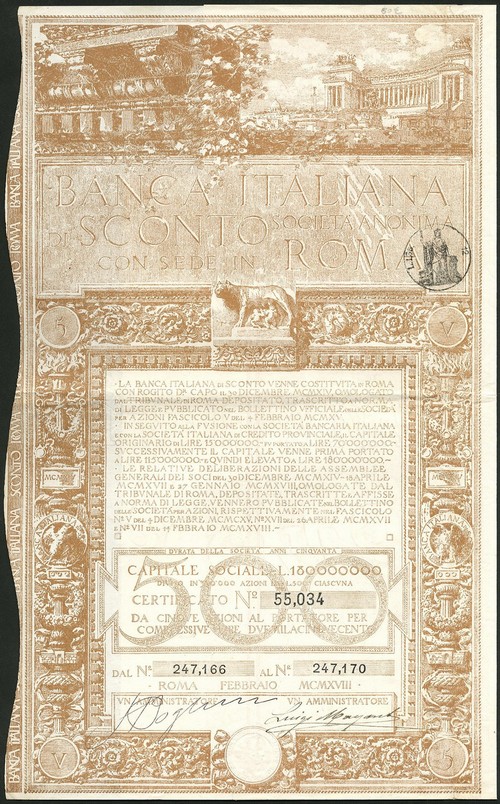 BANCA ITALIANA
DI SCONTO SOCIETA ANONIMA
CON SEDE IN ROMA
5 V
·LA BANCA ITALIANA DI SCONTO VENNE COSTITVITA DI ROMA
CON ROGITO DR CAPO IL 30 DICEMBRE MCMXIV OMOLOGATO
DAL TRIBVNALE DI ROMA DEPOSITATO, TRASCRITTO A NORMA
DI LEGGE E PVBBLICATO NEL BOLLETTINO VFFICIALE DELLE SOCIETÀ
PER AZIONI FASCICOLO V DEL 4 FEBBRAIO MCMXV·
IN SEGVITO ALLA FVSIONE CON LA SOCIETÀ BANCARIA ITALIANA
E CON LA SOCIETÀ ITALIANA DI CREDITO PROVINCIALE, IL CAPITALE
ORIGINARIO DI LIRE 15000000 FV PORTATO A LIRE 70000000
SVCCESSIVAMENTE IL CAPITALE VENNE PRIMA PORTATO
A LIRE 115000000 E QVINDI ELEVATO A LIRE 180000000·
LE RELATIVE DELIBERAZIONI DELLE ASSEMBLEE
GENERALI DEI SOCI DEL 30 DICEMBRE MCMXIV
MCMXVII E 27 GENNAIO MCMXVIII, OMOLOGATE DAL
TRIBVNALE DI ROMA, DEPOSITATE, TRASCRITTE E AFFISSE
A NORMA DI LEGGE, VENNERO PVBBLICATE NEL BOLLETTINO
DELLE SOCIETÀ PER AZIONI, RISPETTIVAMENTE NEL FASCICOLO
Nº V DEL 4 DICEMBRE MCMXV, Nº XVII DEL 26 APRILE MCMXVII
E Nº VII DEL 15 FEBBRAIO MCMXVIII·
DVRATA DELLA SOCIETÀ ANNI CINQVANTA
CAPITALE SOCIALE L. 180000000
DIVISO IN AZIONI DA L. 500 CIASCVNA
500
CERTIFICATO Nº 55,034
DA CINQVE AZIONI AL PORTATORE PER
COMPLESSIVE LIRE DVEMILACINQVECENTO
DAL Nº 247,166 AL Nº 247,170
·ROMA FEBBRAIO MCMXVIII·
VN AMMINISTRATORE VN AMMINISTRATORE
V 5